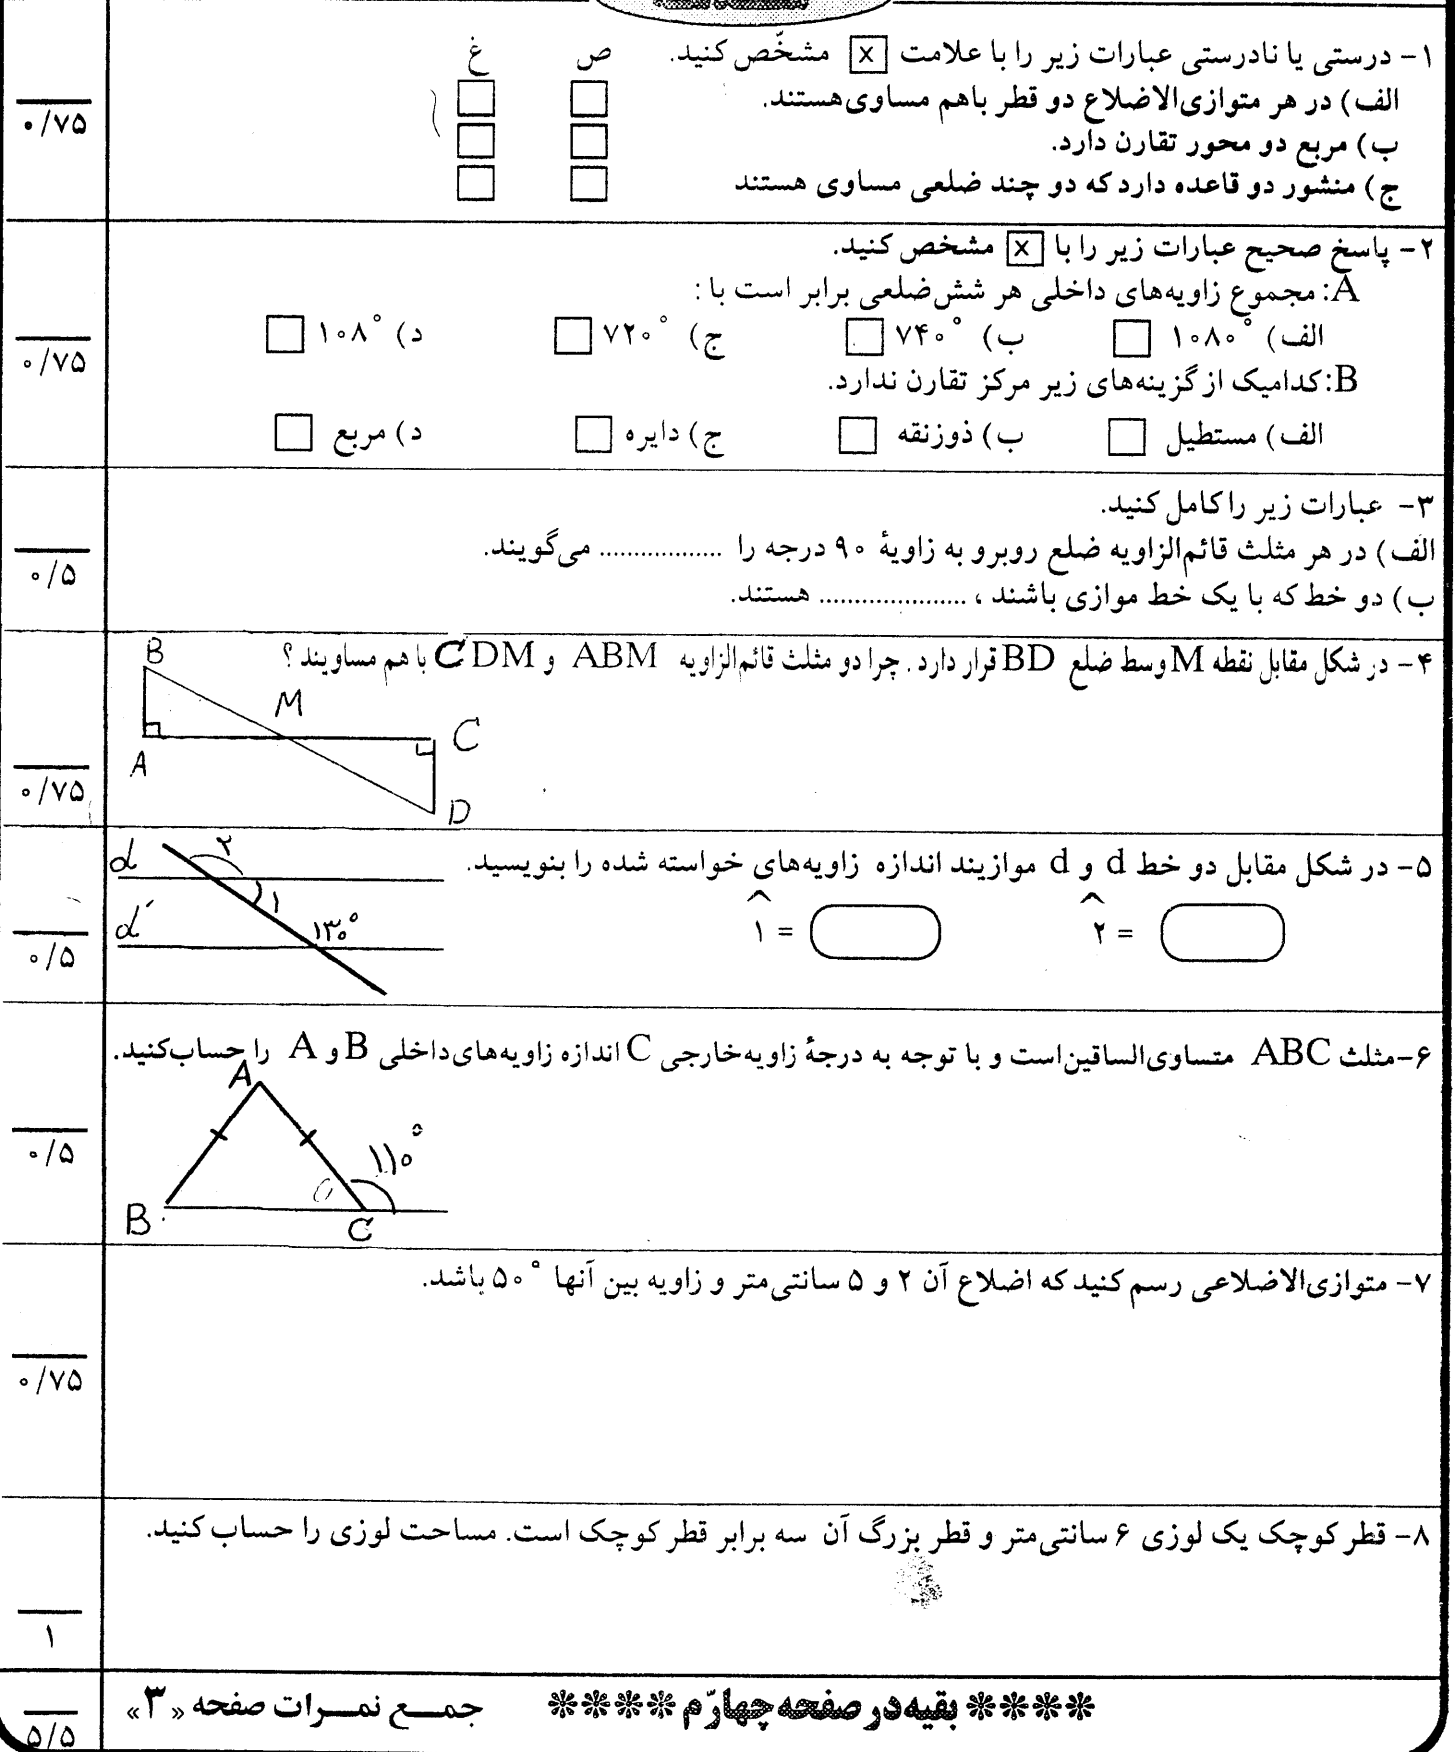 ۱- درستی یا نادرستی عبارات زیر را با علامت x مشخّص کنید. ص غ
الف) در هر متوازی‌الاضلاع دو قطر باهم مساوی‌هستند.
ب) مربع دو محور تقارن دارد.
ج) منشور دو قاعده دارد که دو چند ضلعی مساوی هستند
۰/۷۵
۲- پاسخ صحیح عبارات زیر را با x مشخص کنید.
A: مجموع زاویه‌های داخلی هر شش‌ضلعی برابر است با :
الف) ۱۰۸۰° ب) ۷۴۰° ج) ۷۲۰° د) ۱۰۸°
B: کدامیک از گزینه‌های زیر مرکز تقارن ندارد.
الف) مستطیل ب) ذوزنقه ج) دایره د) مربع
۰/۷۵
۳- عبارات زیر را کامل کنید.
الف) در هر مثلث قائم‌الزاویه ضلع روبرو به زاویهٔ ۹۰ درجه را .................. می‌گویند.
ب) دو خط که با یک خط موازی باشند ، ..................... هستند.
۰/۵
۴- در شکل مقابل نقطه M وسط ضلع BD قرار دارد . چرا دو مثلث قائم‌الزاویه ABM و CDM با هم مساویند ؟
B
M
C
A
D
۰/۷۵
۵- در شکل مقابل دو خط d و d موازیند اندازه زاویه‌های خواسته شده را بنویسید.
۲ = ۱ =
d ۲
۱
d´ ۱۳۰°
۰/۵
۶-مثلث ABC متساوی‌الساقین‌است و با توجه به درجهٔ زاویه‌خارجی C اندازه زاویه‌های‌داخلی B و A را حساب‌کنید.
A
۱۱۰°
B C
۰/۵
۷- متوازی‌الاضلاعی رسم کنید که اضلاع آن ۲ و ۵ سانتی‌متر و زاویه بین آنها ۵۰° باشد.
۰/۷۵
۸- قطر کوچک یک لوزی ۶ سانتی‌متر و قطر بزرگ آن سه برابر قطر کوچک است. مساحت لوزی را حساب کنید.
۱
بقیه در صفحه چهارّم جمـــع نمـــرات صفحه «۳»
۵/۵